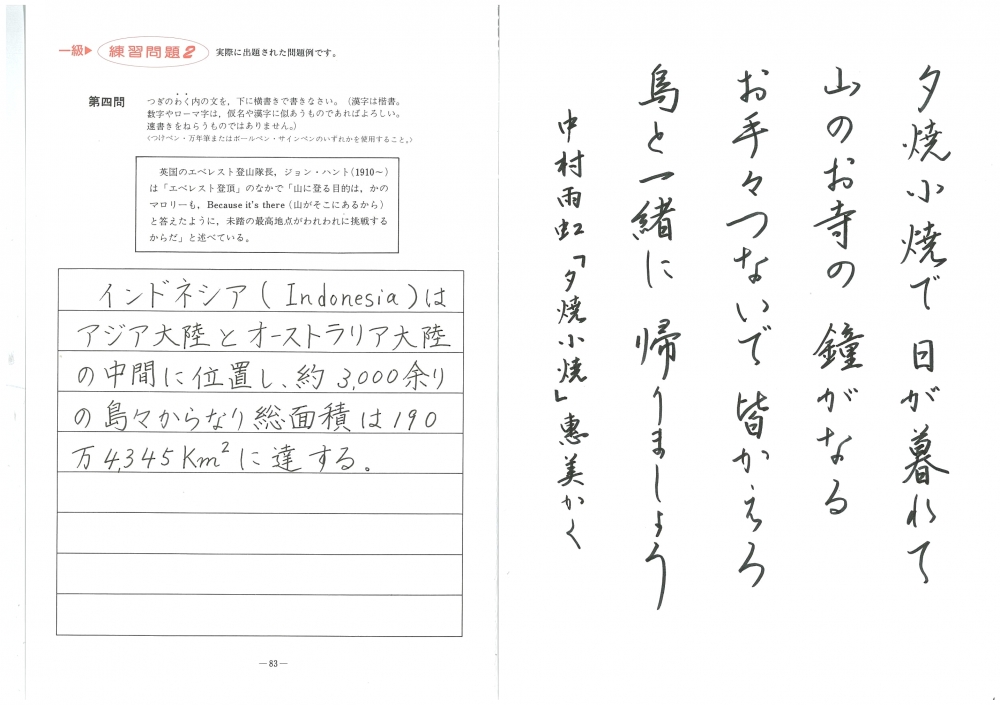 一級▶ 練習問題2 実際に出題された問題例です。
第四問 つぎのわく内の文を、下に横書きで書きなさい。(漢字は楷書。
数字やローマ字は、仮名や漢字に似あうものであればよろしい。
速書きをねらうものではありません。)
〈つけペン・万年筆またはボールペン・サインペンのいずれかを使用すること。〉
英国のエベレスト登山隊長,ジョン・ハント(1910〜)
は「エベレスト登頂」のなかで「山に登る目的は,かの
マロリーも,Because it's there(山がそこにあるから)
と答えたように,未踏の最高地点がわれわれに挑戦する
からだ」と述べている。
インドネシア(Indonesia)は
アジア大陸とオーストラリア大陸
の中間に位置し、約3,000余り
の島々からなり総面積は190
万4,345Km²に達する。
—83—
夕焼小焼で日が暮れて
山のお寺の鐘がなる
お手々つないで皆かえろ
烏と一緒に帰りましょう
中村雨虹「夕焼小焼」恵美かく